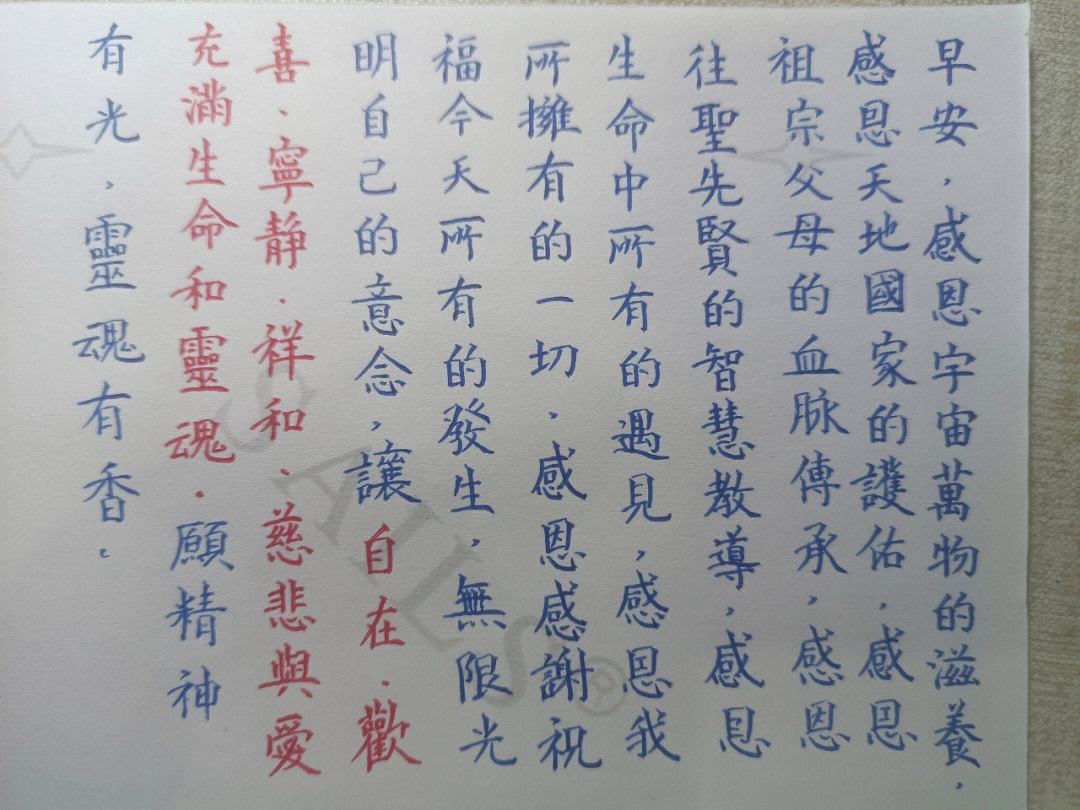 早安，感恩宇宙萬物的滋養，
感恩天地國家的護佑，感恩
祖宗父母的血脈傳承，感恩
往聖先賢的智慧教導，感恩
生命中所有的遇見，感恩我
所擁有的一切，感恩感謝祝
福今天所有的發生，無限光
明自己的意念，讓自在、歡
喜、寧靜、祥和、慈悲與愛
充滿生命和靈魂。願精神
有光，靈魂有香。
SAILS®